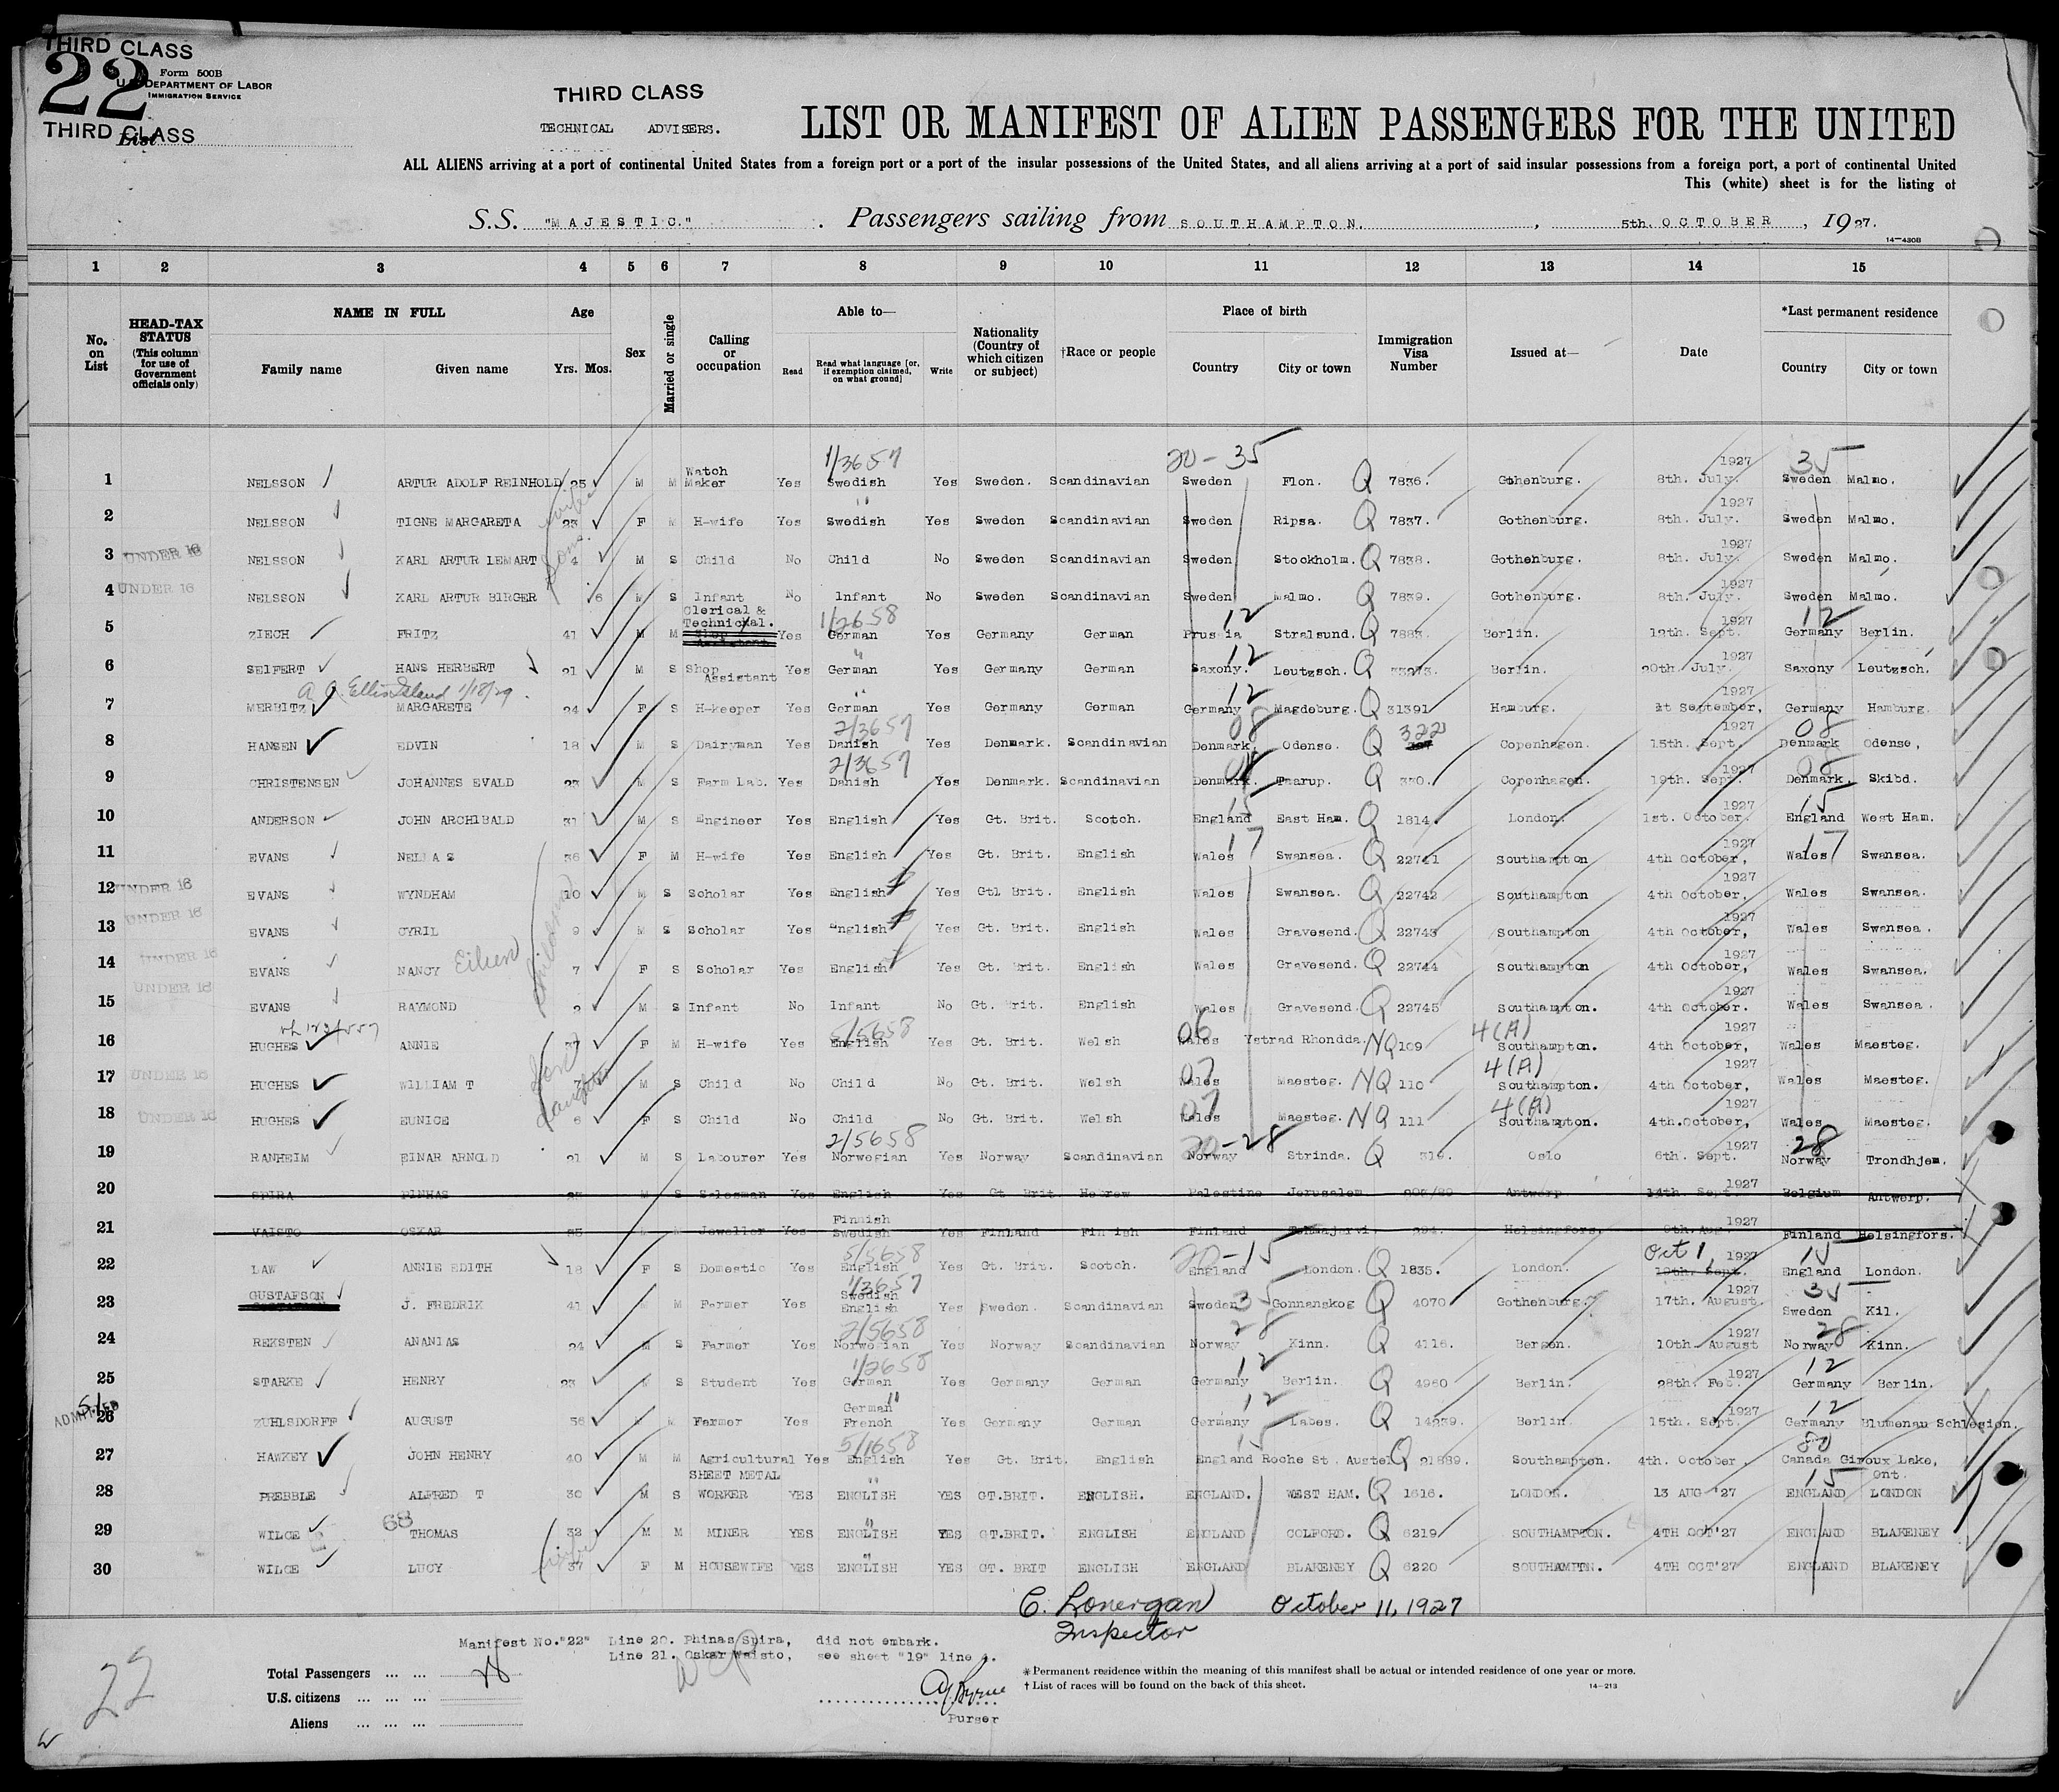 THIRD CLASS
22
Form 500B
U.S. DEPARTMENT OF LABOR
IMMIGRATION SERVICE
THIRD CLASS
List
THIRD CLASS
TECHNICAL ADVISERS.
LIST OR MANIFEST OF ALIEN PASSENGERS FOR THE UNITED
ALL ALIENS arriving at a port of continental United States from a foreign port or a port of the insular possessions of the United States, and all aliens arriving at a port of said insular possessions from a foreign port, a port of continental United
This (white) sheet is for the listing of
S.S. "MAJESTIC." Passengers sailing from SOUTHAMPTON. , 5th. OCTOBER , 1927.
14—430B
1 2 3 4 5 6 7 8 9 10 11 12 13 14 15
No. on List
HEAD-TAX STATUS (This column for use of Government officials only)
NAME IN FULL
Family name Given name
Age
Yrs. Mos.
Sex
Married or single
Calling or occupation
Able to—
Read
Read what language [or, if exemption claimed, on what ground]
Write
Nationality (Country of which citizen or subject)
†Race or people
Place of birth
Country City or town
Immigration Visa Number
Issued at—
Date
*Last permanent residence
Country City or town
1/3657 20-35 1927 35
1 NELSSON ARTUR ADOLF REINHOLD 25 M M Watch Maker Yes Swedish Yes Sweden. Scandinavian Sweden Flon. Q 7836. Gothenburg. 8th. July. Sweden Malmo.
2 NELSSON TIGNE MARGARETA wife 23 F M H-wife Yes Swedish Yes Sweden Scandinavian Sweden Ripsa. Q 7837. Gothenburg. 8th. July. 1927 Sweden Malmo.
3 UNDER 16 NELSSON KARL ARTUR LEMART sons 4 M S Child No Child No Sweden Scandinavian Sweden Stockholm. Q 7838. Gothenburg. 8th. July. 1927 Sweden Malmo.
4 UNDER 16 NELSSON KARL ARTUR BIRGER 6 M S Infant No Infant No Sweden Scandinavian Sweden Malmo. Q 7839. Gothenburg. 8th. July. 1927 Sweden Malmo.
5 ZIECH FRITZ 41 M M Clerical & Technical. Yes 1/2658 German Yes Germany German Prussia 12 Stralsund. Q 7883. Berlin. 12th. Sept. 1927 12 Germany Berlin.
6 SEIFERT HANS HERBERT 21 M S Shop Assistant Yes German Yes Germany German Saxony. 12 Leutzsch. Q 33273. Berlin. 20th. July. 1927 Saxony Leutzsch.
Ellis Island 1/18/29.
7 MERBITZ MARGARETE 24 F S H-keeper Yes German Yes Germany German Germany 12 Magdeburg. Q 31391 Hamburg. 1st September, 1927 Germany Hamburg.
8 HANSEN EDVIN 18 M S Dairyman Yes 2/3657 Danish Yes Denmark. Scandinavian Denmark. 08 Odense. Q 322 Copenhagen. 15th. Sept. 1927 08 Denmark Odense,
9 CHRISTENSEN JOHANNES EVALD 23 M S Farm Lab. Yes 2/3657 Danish Yes Denmark. Scandinavian Denmark. Taarup. Q 330. Copenhagen. 19th. Sept. 1927 08 Denmark. Skibd.
10 ANDERSON JOHN ARCHIBALD 31 M S Engineer Yes English Yes Gt. Brit. Scotch. England 15 East Ham. Q 1814. London. 1st. October. 1927 15 England West Ham.
11 EVANS NELLA S 36 F M H-wife Yes English Yes Gt. Brit. English Wales 17 Swansea. Q 22741 Southampton 4th October, 1927 17 Wales Swansea.
12 UNDER 16 EVANS WYNDHAM children 10 M S Scholar Yes English Yes Gtl Brit. English Wales Swansea. Q 22742 Southampton 4th October. 1927 Wales Swansea.
13 UNDER 16 EVANS CYRIL 9 M S Scholar Yes English Yes Gt. Brit. English Wales Gravesend. Q 22743 Southampton 4th October, 1927 Wales Swansea.
14 UNDER 16 EVANS NANCY Eileen 7 F S Scholar Yes English Yes Gt. Brit. English Wales Gravesend. Q 22744 Southampton 4th October, 1927 Wales Swansea.
15 UNDER 16 EVANS RAYMOND 2 M S Infant No Infant No Gt. Brit. English Wales Gravesend. Q 22745 Southampton. 4th October. 1927 Wales Swansea.
16 HUGHES ANNIE 37 F M H-wife Yes 5/5658 English Yes Gt. Brit. Welsh 06 Wales Ystrad Rhondda. NQ 109 4(A) Southampton. 4th October, 1927 Wales Maesteg.
17 UNDER 16 HUGHES WILLIAM T son 7 M S Child No Child No Gt. Brit. Welsh 07 Wales Maesteg. NQ 110 4(A) Southampton. 4th October, 1927 Wales Maesteg.
18 UNDER 16 HUGHES EUNICE daughter 6 F S Child No Child No Gt. Brit. Welsh 07 Wales Maesteg. NQ 111 4(A) Southampton. 4th. October, 1927 Wales Maesteg.
19 RANHEIM EINAR ARNOLD 21 M S Labourer Yes 2/5658 Norwegian Yes Norway Scandinavian 20-28 Norway Strinda. Q 319. Oslo 6th. Sept. 1927 28 Norway Trondhjem.
20 SPIRA PINHAS M S Salesman Yes English Yes Gt. Brit. Hebrew Palestine Jerusalem Antwerp 14th. Sept. 1927 Belgium Antwerp.
21 VAISTO OSKAR 35 M Jeweller Yes Finnish Swedish Yes Finland Finnish Finland Helsingfors. Aug. 1927 Finland Helsingfors.
22 LAW ANNIE EDITH 18 F S Domestic Yes 5/5658 English Yes Gt. Brit. Scotch. 20-15 England London. Q 1835. London. Oct 1, 19th. Sept. 1927 15 England London.
23 GUSTAFSON J. FREDRIK 41 M M Farmer Yes 1/3657 Swedish English Yes Sweden. Scandinavian Sweden 35 Gonnanskog Q 4070 Gothenburg. 17th. August. 1927 35 Sweden Kil.
24 REKSTEN ANANIAS 24 M S Farmer Yes 2/5658 Norwegian Yes Norway Scandinavian Norway 28 Kinn. Q 4116. Bergen. 10th. August 1927 28 Norway Kinn.
25 STARKE HENRY 23 M S Student Yes 1/2658 German Yes Germany German Germany 12 Berlin. Q 4960 Berlin. 28th. Feb. 1927 12 Germany Berlin.
26 ADMITTED ZUHLSDORFF AUGUST 36 M M Farmer Yes German French Yes Germany German Germany 12 Labes. Q 14239. Berlin. 15th. Sept. 1927 12 Germany Blumenau Schlesien.
27 HAWKEY JOHN HENRY 40 M M Agricultural Yes 5/1658 English Yes Gt. Brit. English England 15 Roche St. Austel Q 21889. Southampton. 4th. October. 80 Canada Giroux Lake, Ont.
28 PREBBLE ALFRED T 30 M S SHEET METAL WORKER YES ENGLISH YES GT.BRIT. ENGLISH. ENGLAND. WEST HAM. Q 1616. LONDON. 13 AUG '27 15 ENGLAND LONDON
29 WILCE 68 THOMAS 32 M M MINER YES ENGLISH YES GT.BRIT. ENGLISH ENGLAND COLFORD. Q 6219 SOUTHAMPTON. 4TH OCT'27 ENGLAND BLAKENEY
30 WILCE LUCY wife 37 F M HOUSEWIFE YES ENGLISH YES GT. BRIT ENGLISH ENGLAND BLAKENEY Q 6220 SOUTHAMPTN. 4TH OCT'27 ENGLAND BLAKENEY
C. Lonergan October 11, 1927
Inspector
Manifest No."22" Line 20. Phinas Spira, did not embark.
Line 21. Oskar Waisto, see sheet "19" line
Total Passengers ... ...
U.S. citizens ... ... ...
Aliens ... ... ...
Purser
* Permanent residence within the meaning of this manifest shall be actual or intended residence of one year or more.
† List of races will be found on the back of this sheet.
14—213
22